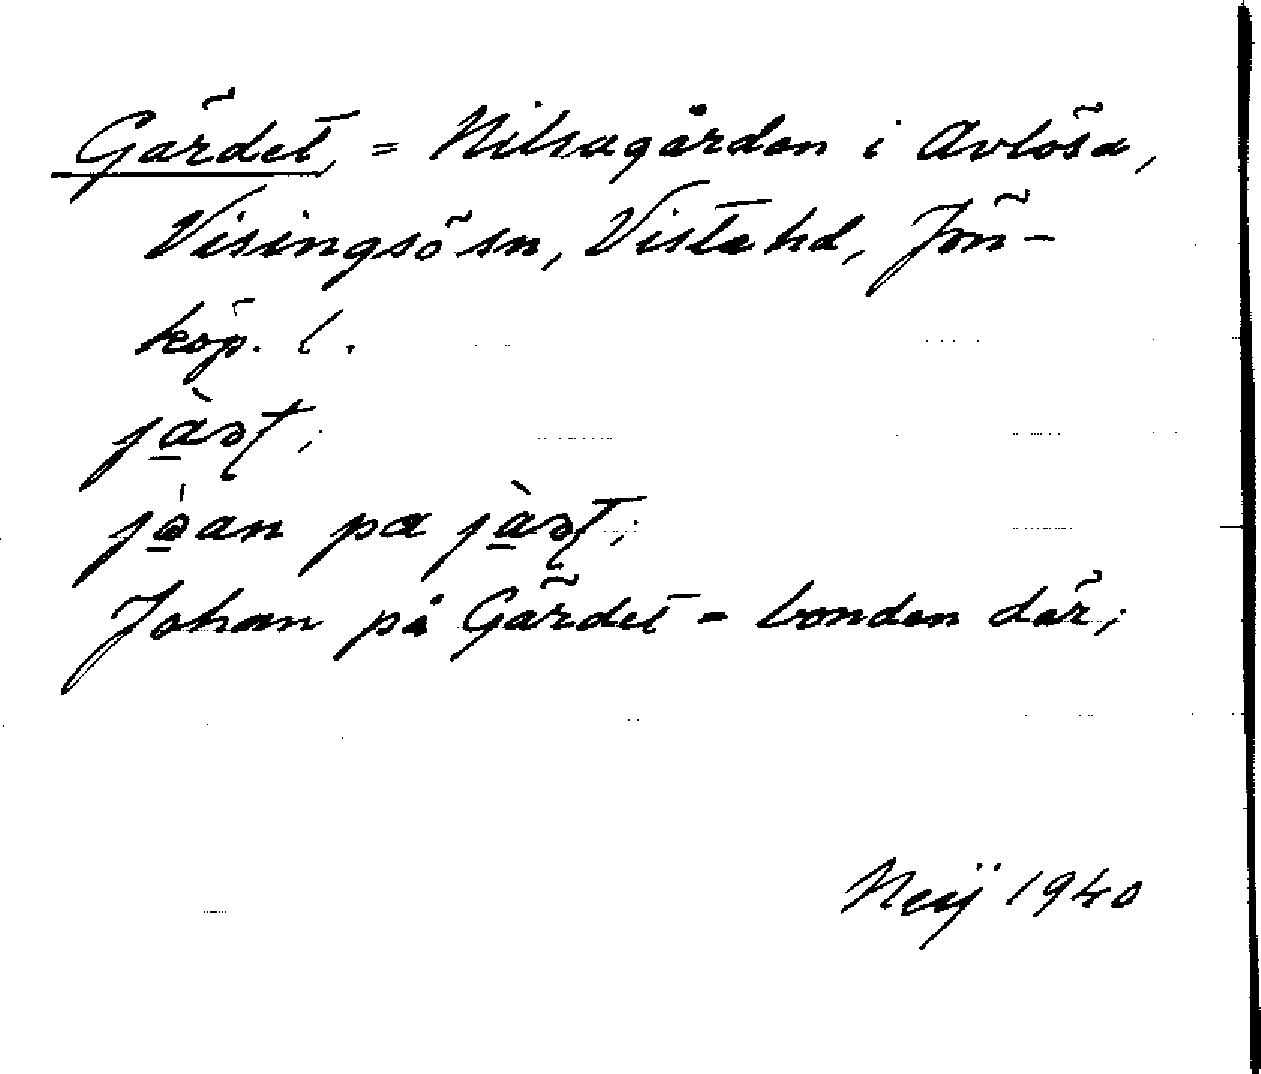 Gärdet, = Nilsagården i Avlösa,
Visingsö sn, Vista hd, Jön-
köp. l.
Johan på Gärdet = bonden där;
Meij 1940